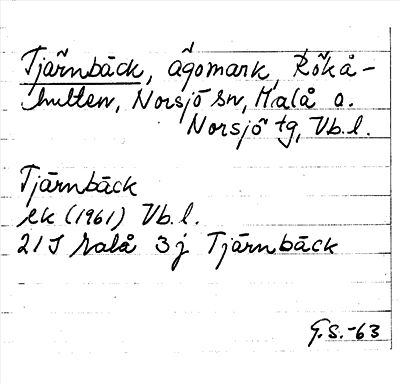 Tjärnbäck, ägomark, Rökå-
hulten, Norsjö sn, Malå o.
Norsjö tg, Vb. l.
Tjärnbäck
ek (1961) Vb. l.
21J Malå 3j Tjärnbäck
G.S.-63